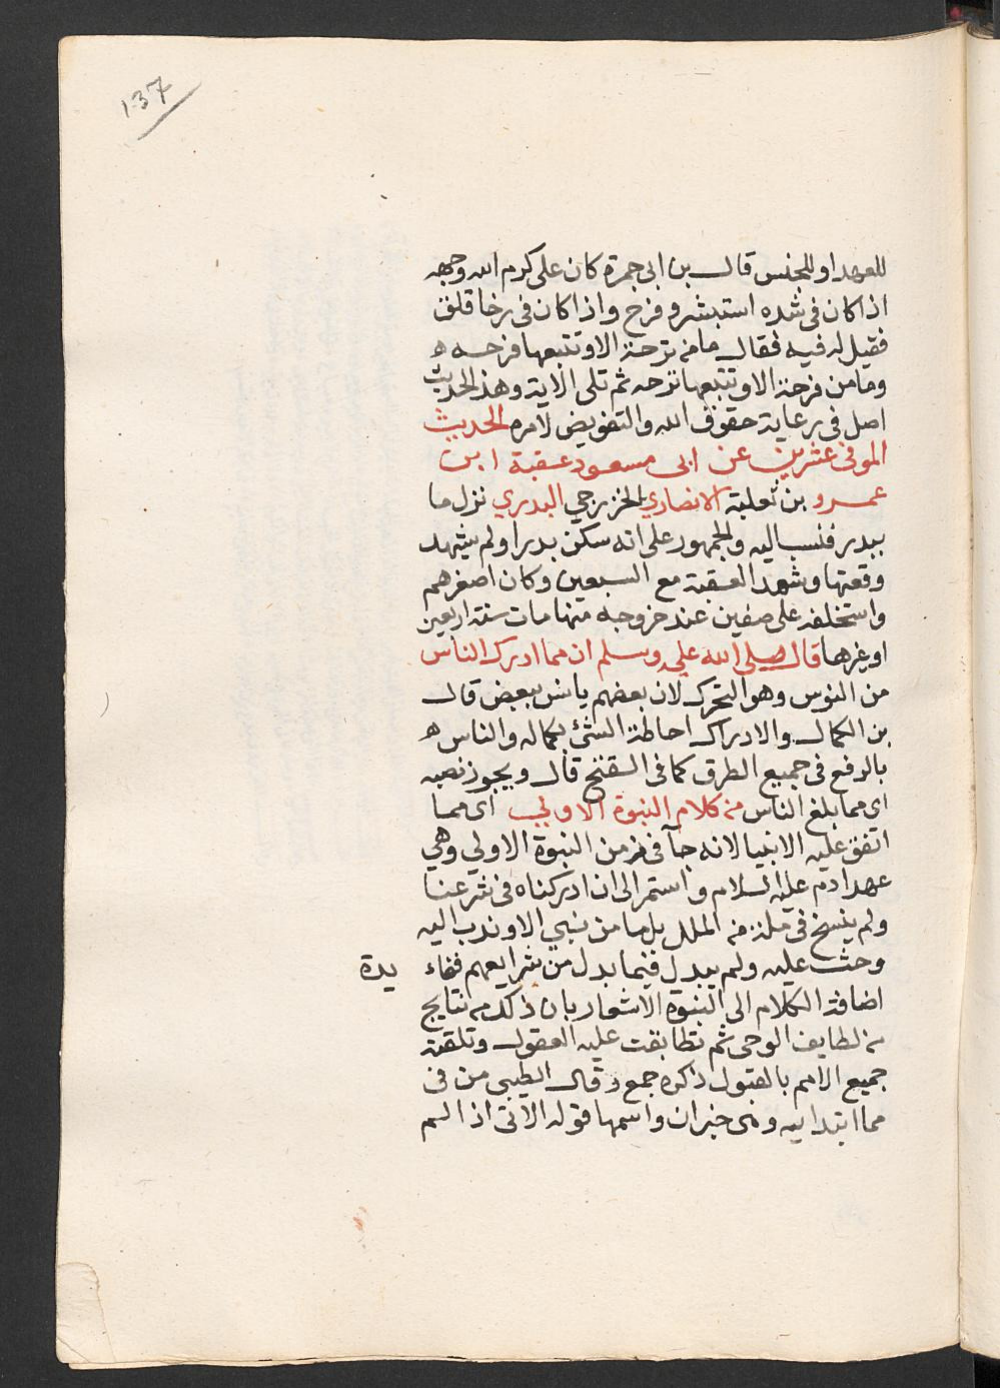 137
للعهد او للجنس قال بن ابي جمرة كان علي كرم الله وجهه
اذا كان في شده استبشر وفرح واذا كان في رخا قلق
فقيل له فيه فقال ما من ترحة الا وتتبعها فرحه
وما من فرحة الا وتتبعها ترحه ثم تلى الاية وهذ الحديث
اصل في رعاية حقوق الله والتفويض لامره الحديث
الموفي عشرين عن ابي مسعود عقبة ابن
عمرو بن ثعلبة الانصاري الخزرجي البدري نزل ما
ببدر فنسب اليه والجمهور على انه سكن بدرا ولم يشهد
وقعتها وشهد العقبة مع السبعين وكان اصغرهم
واستخلفه علي صفين عند خروجه منها مات سنة اربعين
او غيرها قال صلى الله عليه وسلم ان مما ادرك الناس
من النوس وهو التحرك لان بعضهم يانس ببعض قال
بن الكمال والادراك احاطة الشئ بكماله والناس
بالرفع في جميع الطرق كما في الفتح قال ويجوز نصبه
اى مما بلغ الناس من كلام النبوة الاولي اى مما
اتفق عليه الانبيا لانه جآ في زمن النبوة الاولي وهي
عهد ادم عليه السلام واستمر الى ان ادركناه في شرعنا
ولم ينسخ في ملة من الملل بل ما من نبي الا وندب اليه
وحث عليه ولم يبدل فيما بدل من شرايعهم ففاء يدة
اضافة الكلام الى النبوة الاشعار بان ذلك من نتايج
من لطايف الوحي ثم تطابقت عليه العقول وتلقته
جميع الامم بالقبول ذكره جمع وقال الطيبي من في
مما ابتدايه وهى خبر ان واسمها قوله الاتى اذا لم